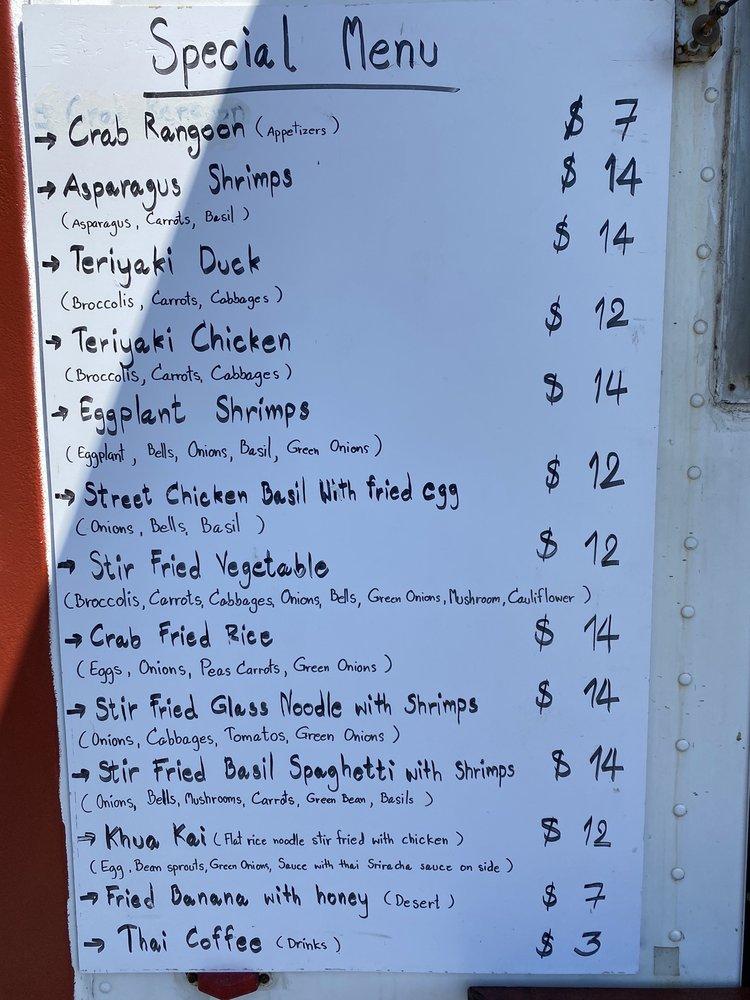 Special Menu
→ Crab Rangoon (Appetizers) $ 7
→ Asparagus Shrimps $ 14
(Asparagus, Carrots, Basil)
→ Teriyaki Duck $ 14
(Broccolis, Carrots, Cabbages)
→ Teriyaki Chicken $ 12
(Broccolis, Carrots, Cabbages)
→ Eggplant Shrimps $ 14
(Eggplant, Bells, Onions, Basil, Green Onions)
→ Street Chicken Basil With fried egg $ 12
(Onions, Bells, Basil)
→ Stir Fried Vegetable $ 12
(Broccolis, Carrots, Cabbages, Onions, Bells, Green Onions, Mushroom, Cauliflower)
→ Crab Fried Rice $ 14
(Eggs, Onions, Peas Carrots, Green Onions)
→ Stir Fried Glass Noodle with Shrimps $ 14
(Onions, Cabbages, Tomatos, Green Onions)
→ Stir Fried Basil Spaghetti with Shrimps $ 14
(Onions, Bells, Mushrooms, Carrots, Green Bean, Basils)
⇒ Khua Kai (Flat rice noodle stir fried with chicken) $ 12
(Egg, Bean sprouts, Green Onions, Sauce with thai Sriracha sauce on side)
→ Fried Banana with honey (Desert) $ 7
→ Thai Coffee (Drinks) $ 3